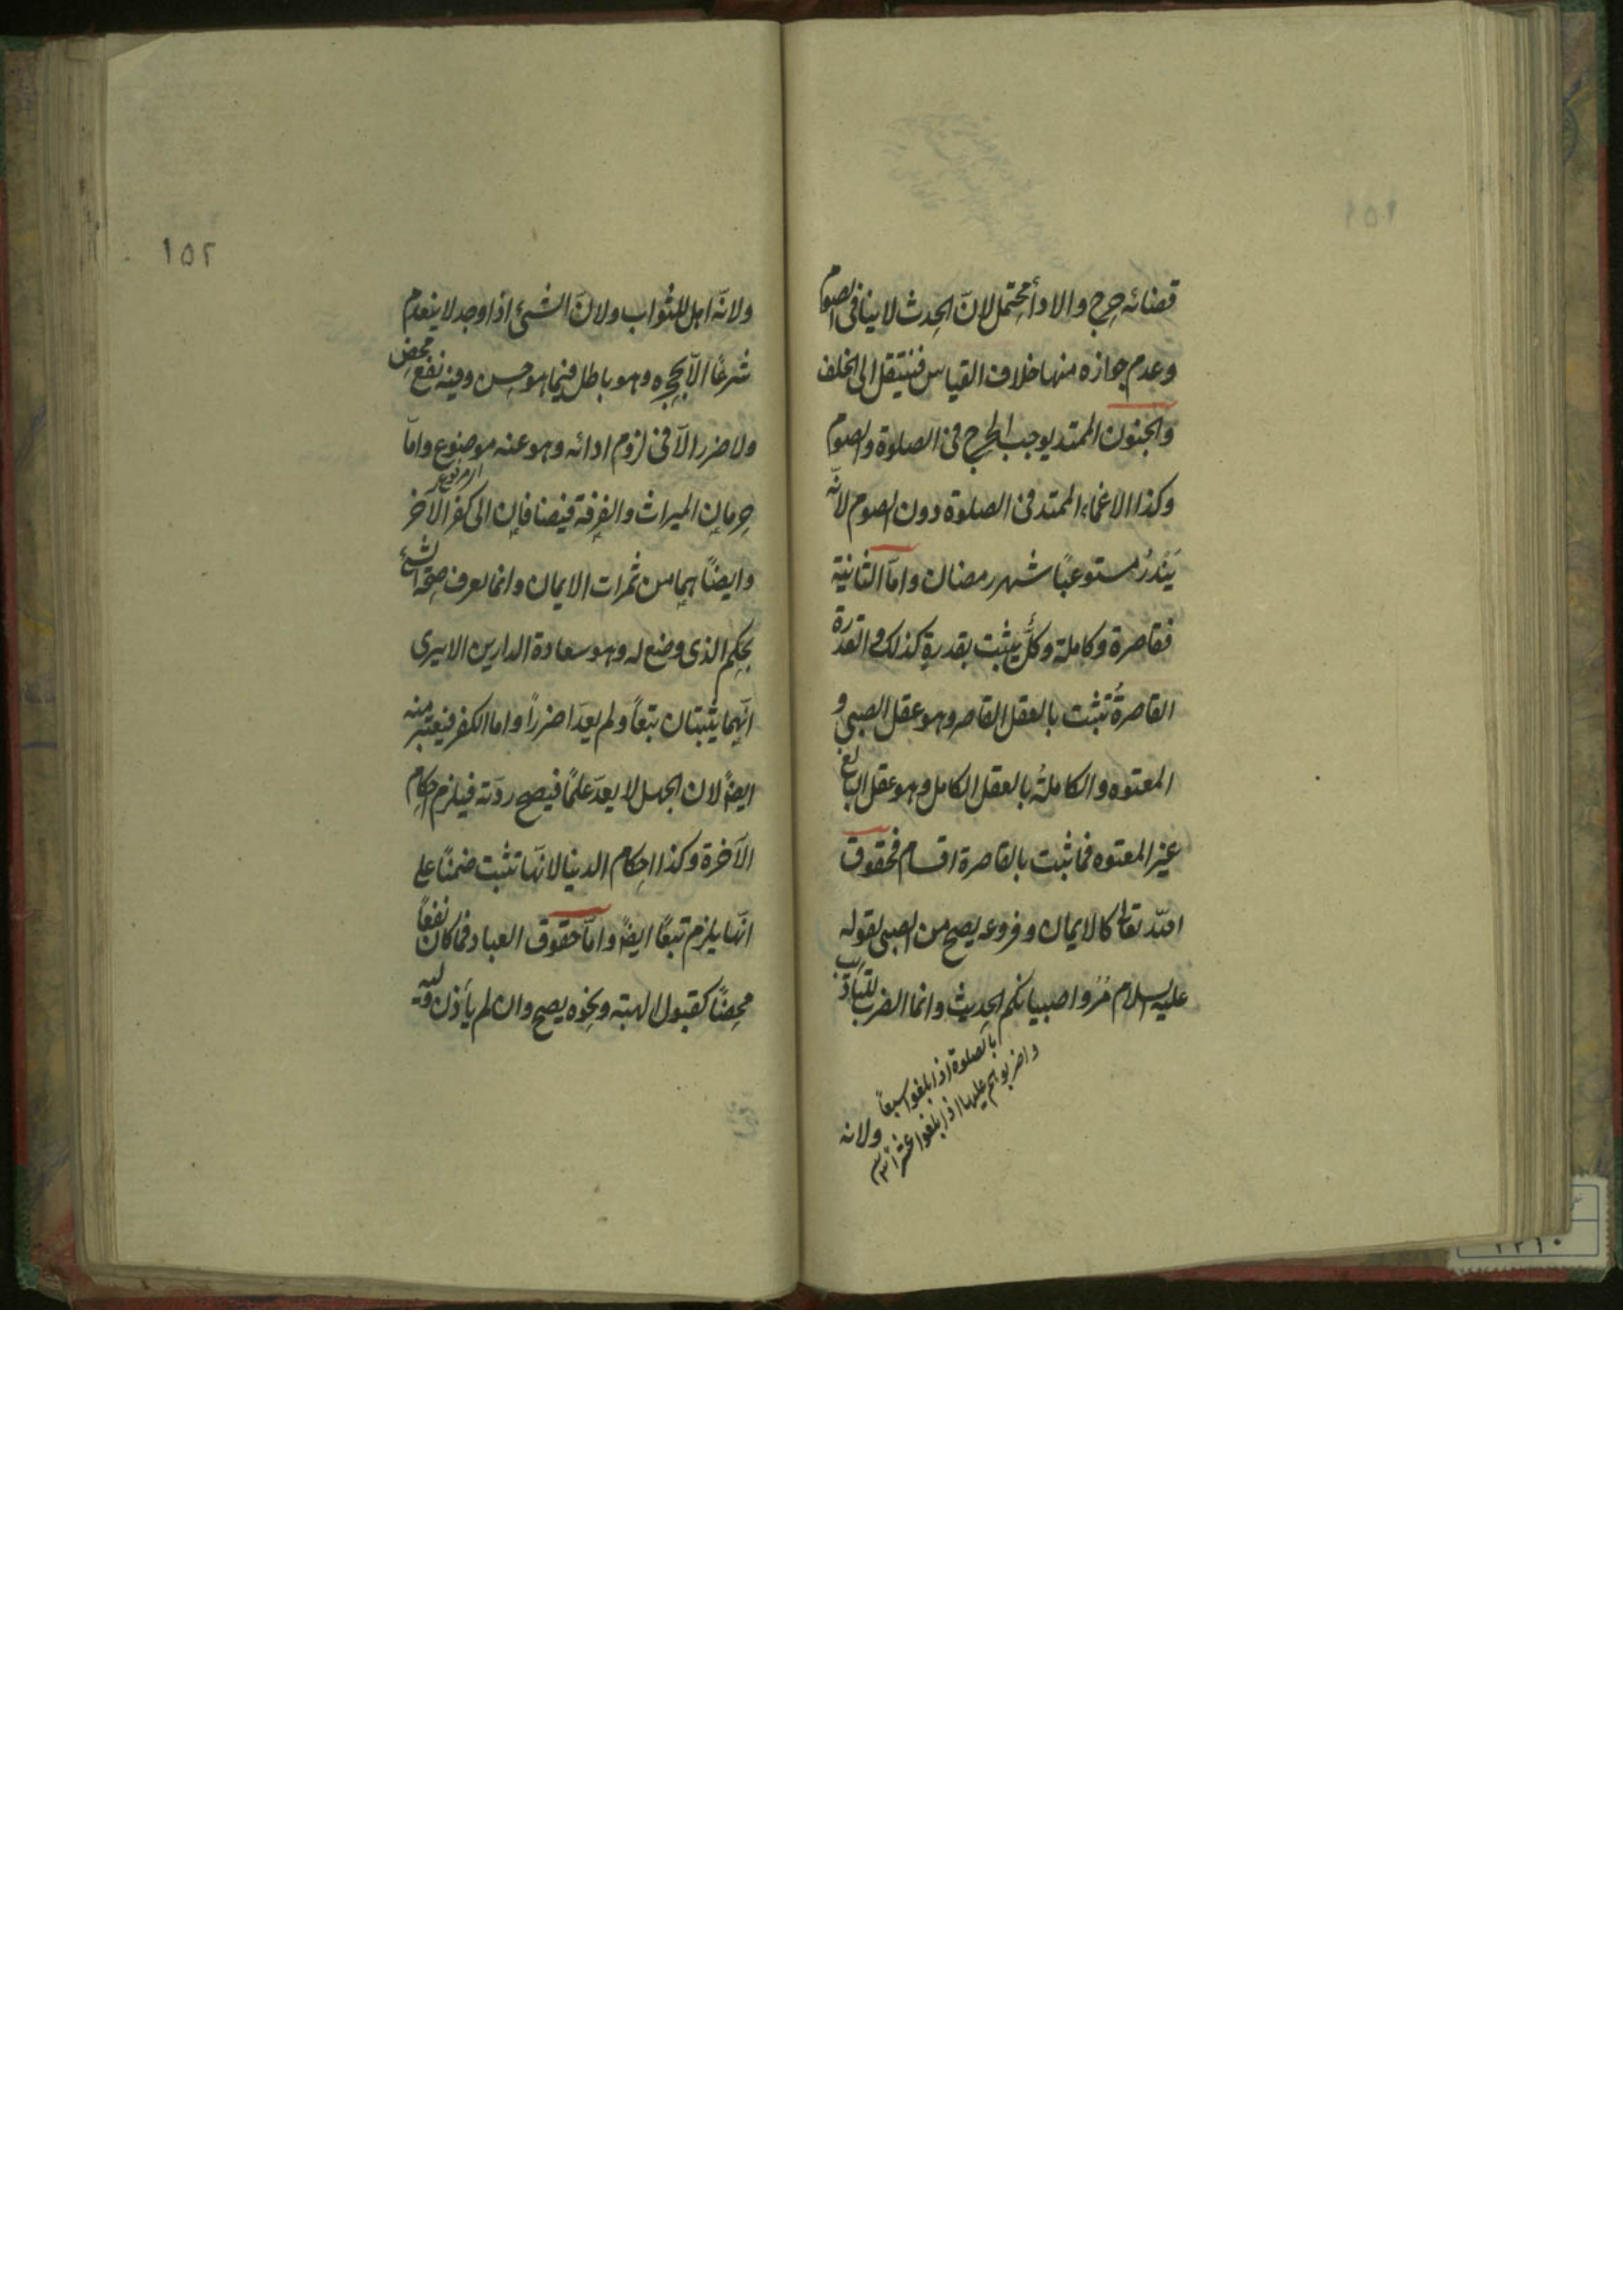 قضائه حرج والاداء محتمل لانّ الحدث لا ينافى الصوم
وعدم جوازه منها خلاف القياس فينتقل الى الخلف
والجنون الممتد يوجب الحرج فى الصلوة والصوم
وكذا الاغماء الممتد فى الصلوة دون الصوم لانّه
يَنْدُرُ مستوعبًا شهر رمضان وامّا الثانية
فقاصرة وكاملة وكلٌّ يثبت بقدرةٍ كذلك والقدرة
القاصرةُ تثبت بالعقل القاصر وهو عقل الصبى و
المعتوه والكاملةُ بالعقل الكامل وهو عقل البالغ
غير المعتوه فما ثبت بالقاصرة اقسام فحقوق
اللّه تعالى كالايمان وفروعه يصح من الصبى لقوله
عليه السلام مُرُوا صبيانكم الحديث وانما الضرب للتأديب
بالصلوة اذا بلغوا سبعًا
واضربوهم عليها اذا بلغوا عشرًا
ولانه
١٥٢
ولانّه اهل للثواب ولانّ الشئ اذا وجد لا ينعدم
شرعًا الّا بحجره وهو باطل فيما هو حسن وفيه نفع محض
ولا ضرر الّا فى لزوم ادائه وهو عنه موضوع وامّا
حرمان الميراث والفرقة فيضافان الى كفر الآخر
وايضًا هما من ثمرات الايمان وانما يعرف صحة الشئ
بحكم الذى وضع له وهو سعادة الدارين الا يرى
انّهما يثبتان تبعًا ولم يعدّا ضررًا واما الكفر فيعتبر منه
ايضًا لان الجهل لا يعدّ علمًا فيصح ردّته فيلزم احكام
الآخرة وكذا احكام الدنيا لانّها تثبت ضمنًا على
انّها يلزم تبعًا ايضًا وامّا حقوق العباد فما كان نفعًا
محضًا كقبول الهبة ونحوه يصح وان لم يأذن وليه